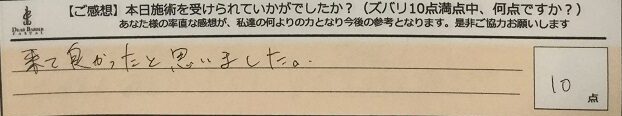 【ご感想】本日施術を受けられていかがでしたか？（ズバリ10点満点中、何点ですか？）
あなた様の率直な感想が、私達の何よりの力となり今後の参考となります。是非ご協力お願いします
DEAR BARBER
来て良かったと思いました。
10点